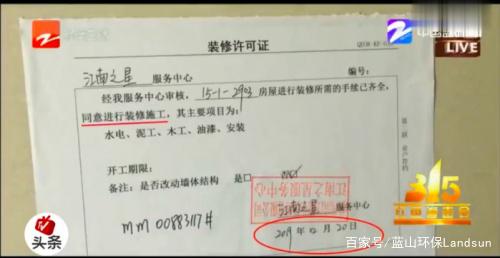 装修许可证
LIVE
江南之星 服务中心
编号:
经我服务中心审核, 15-1-2902 房屋进行装修所需的手续已齐全,
同意进行装修施工, 其主要项目为:
水电、泥工、木工、油漆、安装
开工期限:
备注: 是否改动墙体结构 是口
江南之星服务中心
江南之星 服务中心
mm 00883117#
2019年12月20日
315
头条
百家号/蓝山环保Landsun